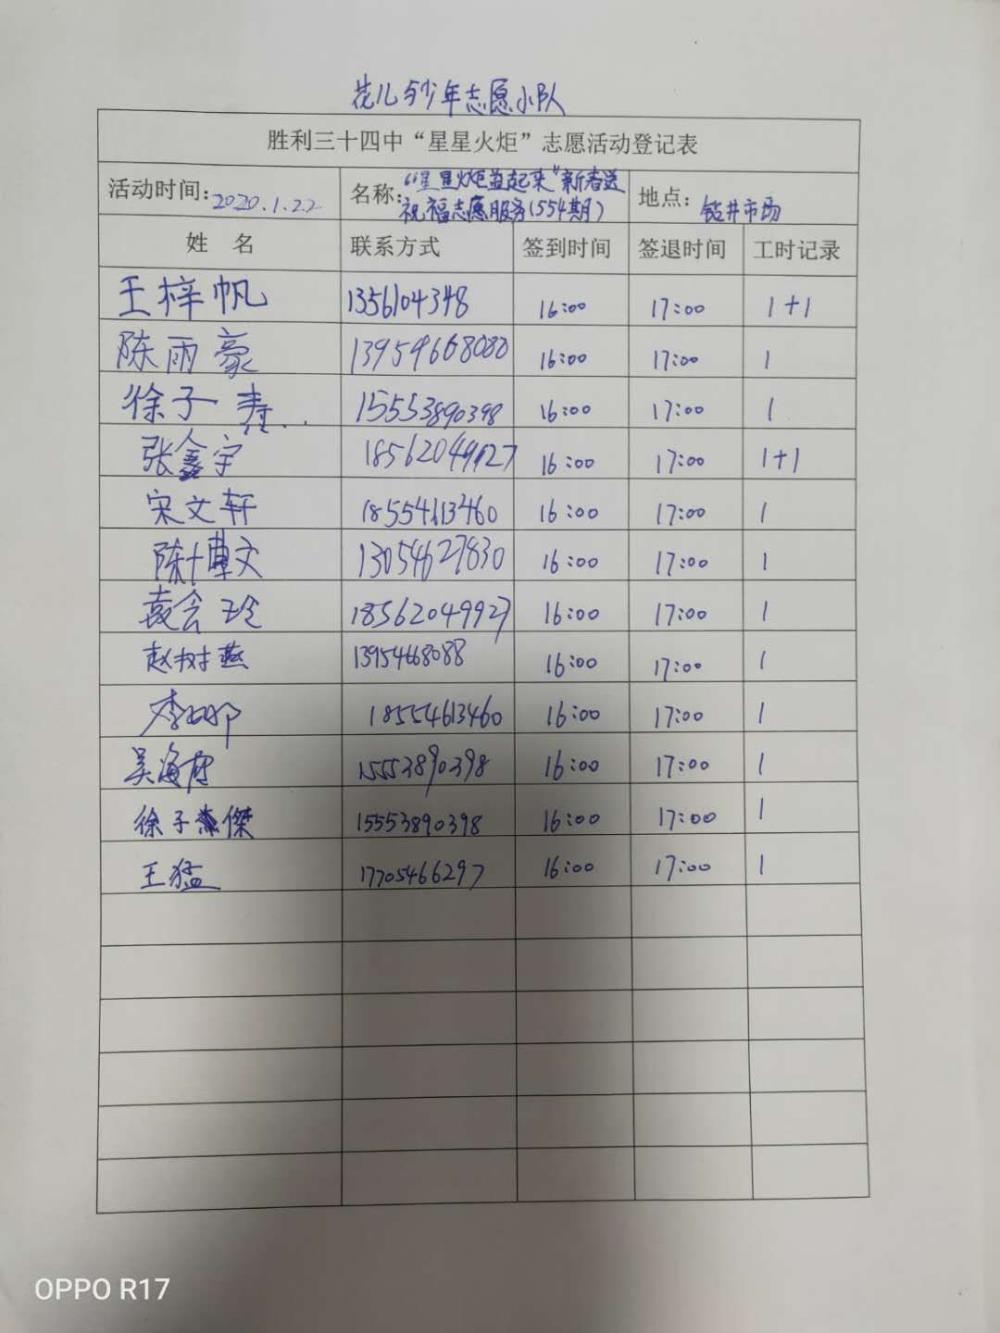 花儿与少年志愿小队
胜利三十四中“星星火炬”志愿活动登记表
活动时间：2020.1.22 名称：“星星火炬益起来”新春送祝福志愿服务(554期) 地点：钻井市场
姓 名 联系方式 签到时间 签退时间 工时记录
王梓帆 1356104348 16:00 17:00 1+1
陈雨豪 13954668088 16:00 17:00 1
徐子寿 15553890398 16:00 17:00 1
张鑫宇 18562049927 16:00 17:00 1+1
宋文轩 18554613460 16:00 17:00 1
陈博文 13054627830 16:00 17:00 1
袁会玲 18562049927 16:00 17:00 1
赵树燕 13954668088 16:00 17:00 1
李 18554613460 16:00 17:00 1
吴海 15553890398 16:00 17:00 1
徐子傑 15553890398 16:00 17:00 1
王猛 17705466297 16:00 17:00 1
OPPO R17